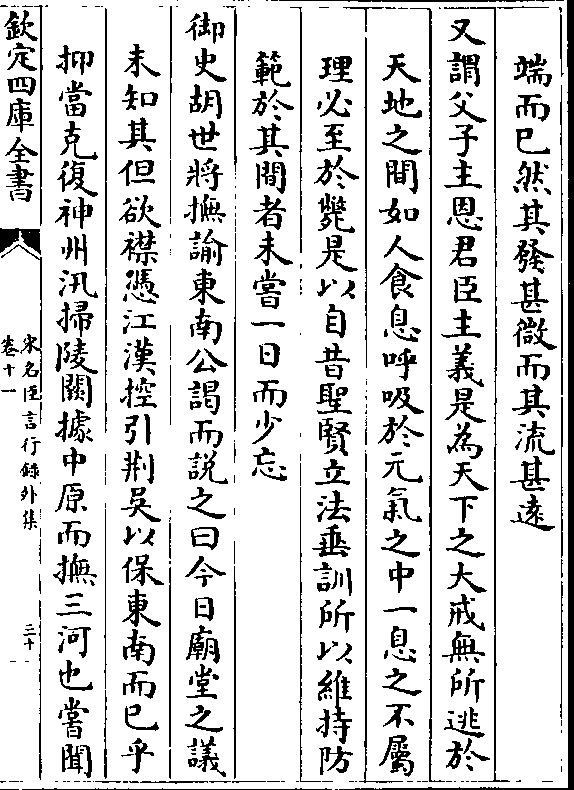 端而已然其發甚微而其流甚遠
又謂父子主恩君臣主義是為天下之大戒無所逃於
天地之間如人食息呼吸於元氣之中一息之不屬
理必至於斃是以自昔聖賢立法垂訓所以維持防
範於其間者未嘗一日而少忘
御史胡世將撫諭東南公謁而説之曰今日廟堂之議
未知其但欲襟憑江漢控引荆吳以保東南而已乎
抑當克復神州汛掃陵闕據中原而撫三河也嘗聞
欽定四庫全書
宋名臣言行錄外集
卷十一
二十